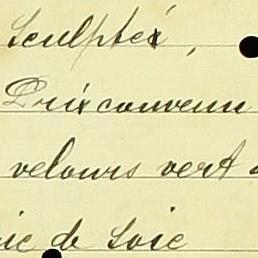 Sculpté,
Prix convenu
velours vert
de Soie